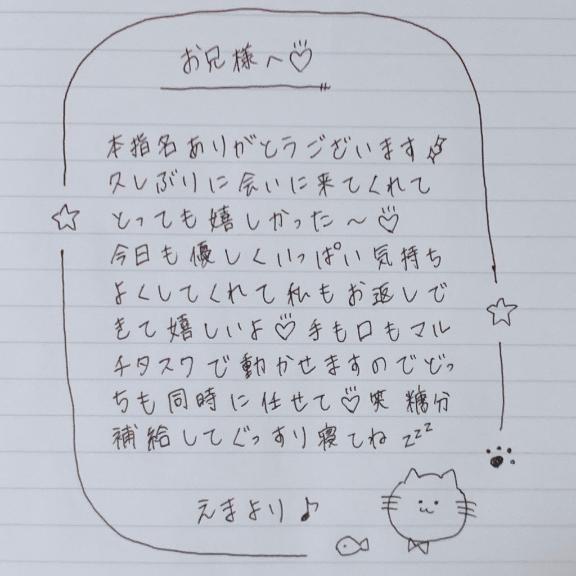 お兄様へ♡
本指名ありがとうございます
久しぶりに会いに来てくれて
とっても嬉しかった〜♡
今日も優しくいっぱい気持ち
よくしてくれて私もお返しで
きて嬉しいよ♡手も口もマル
チタスクで動かせますのでどっ
ちも同時に任せて♡笑 糖分
補給してぐっすり寝てね zzz
えまより♪